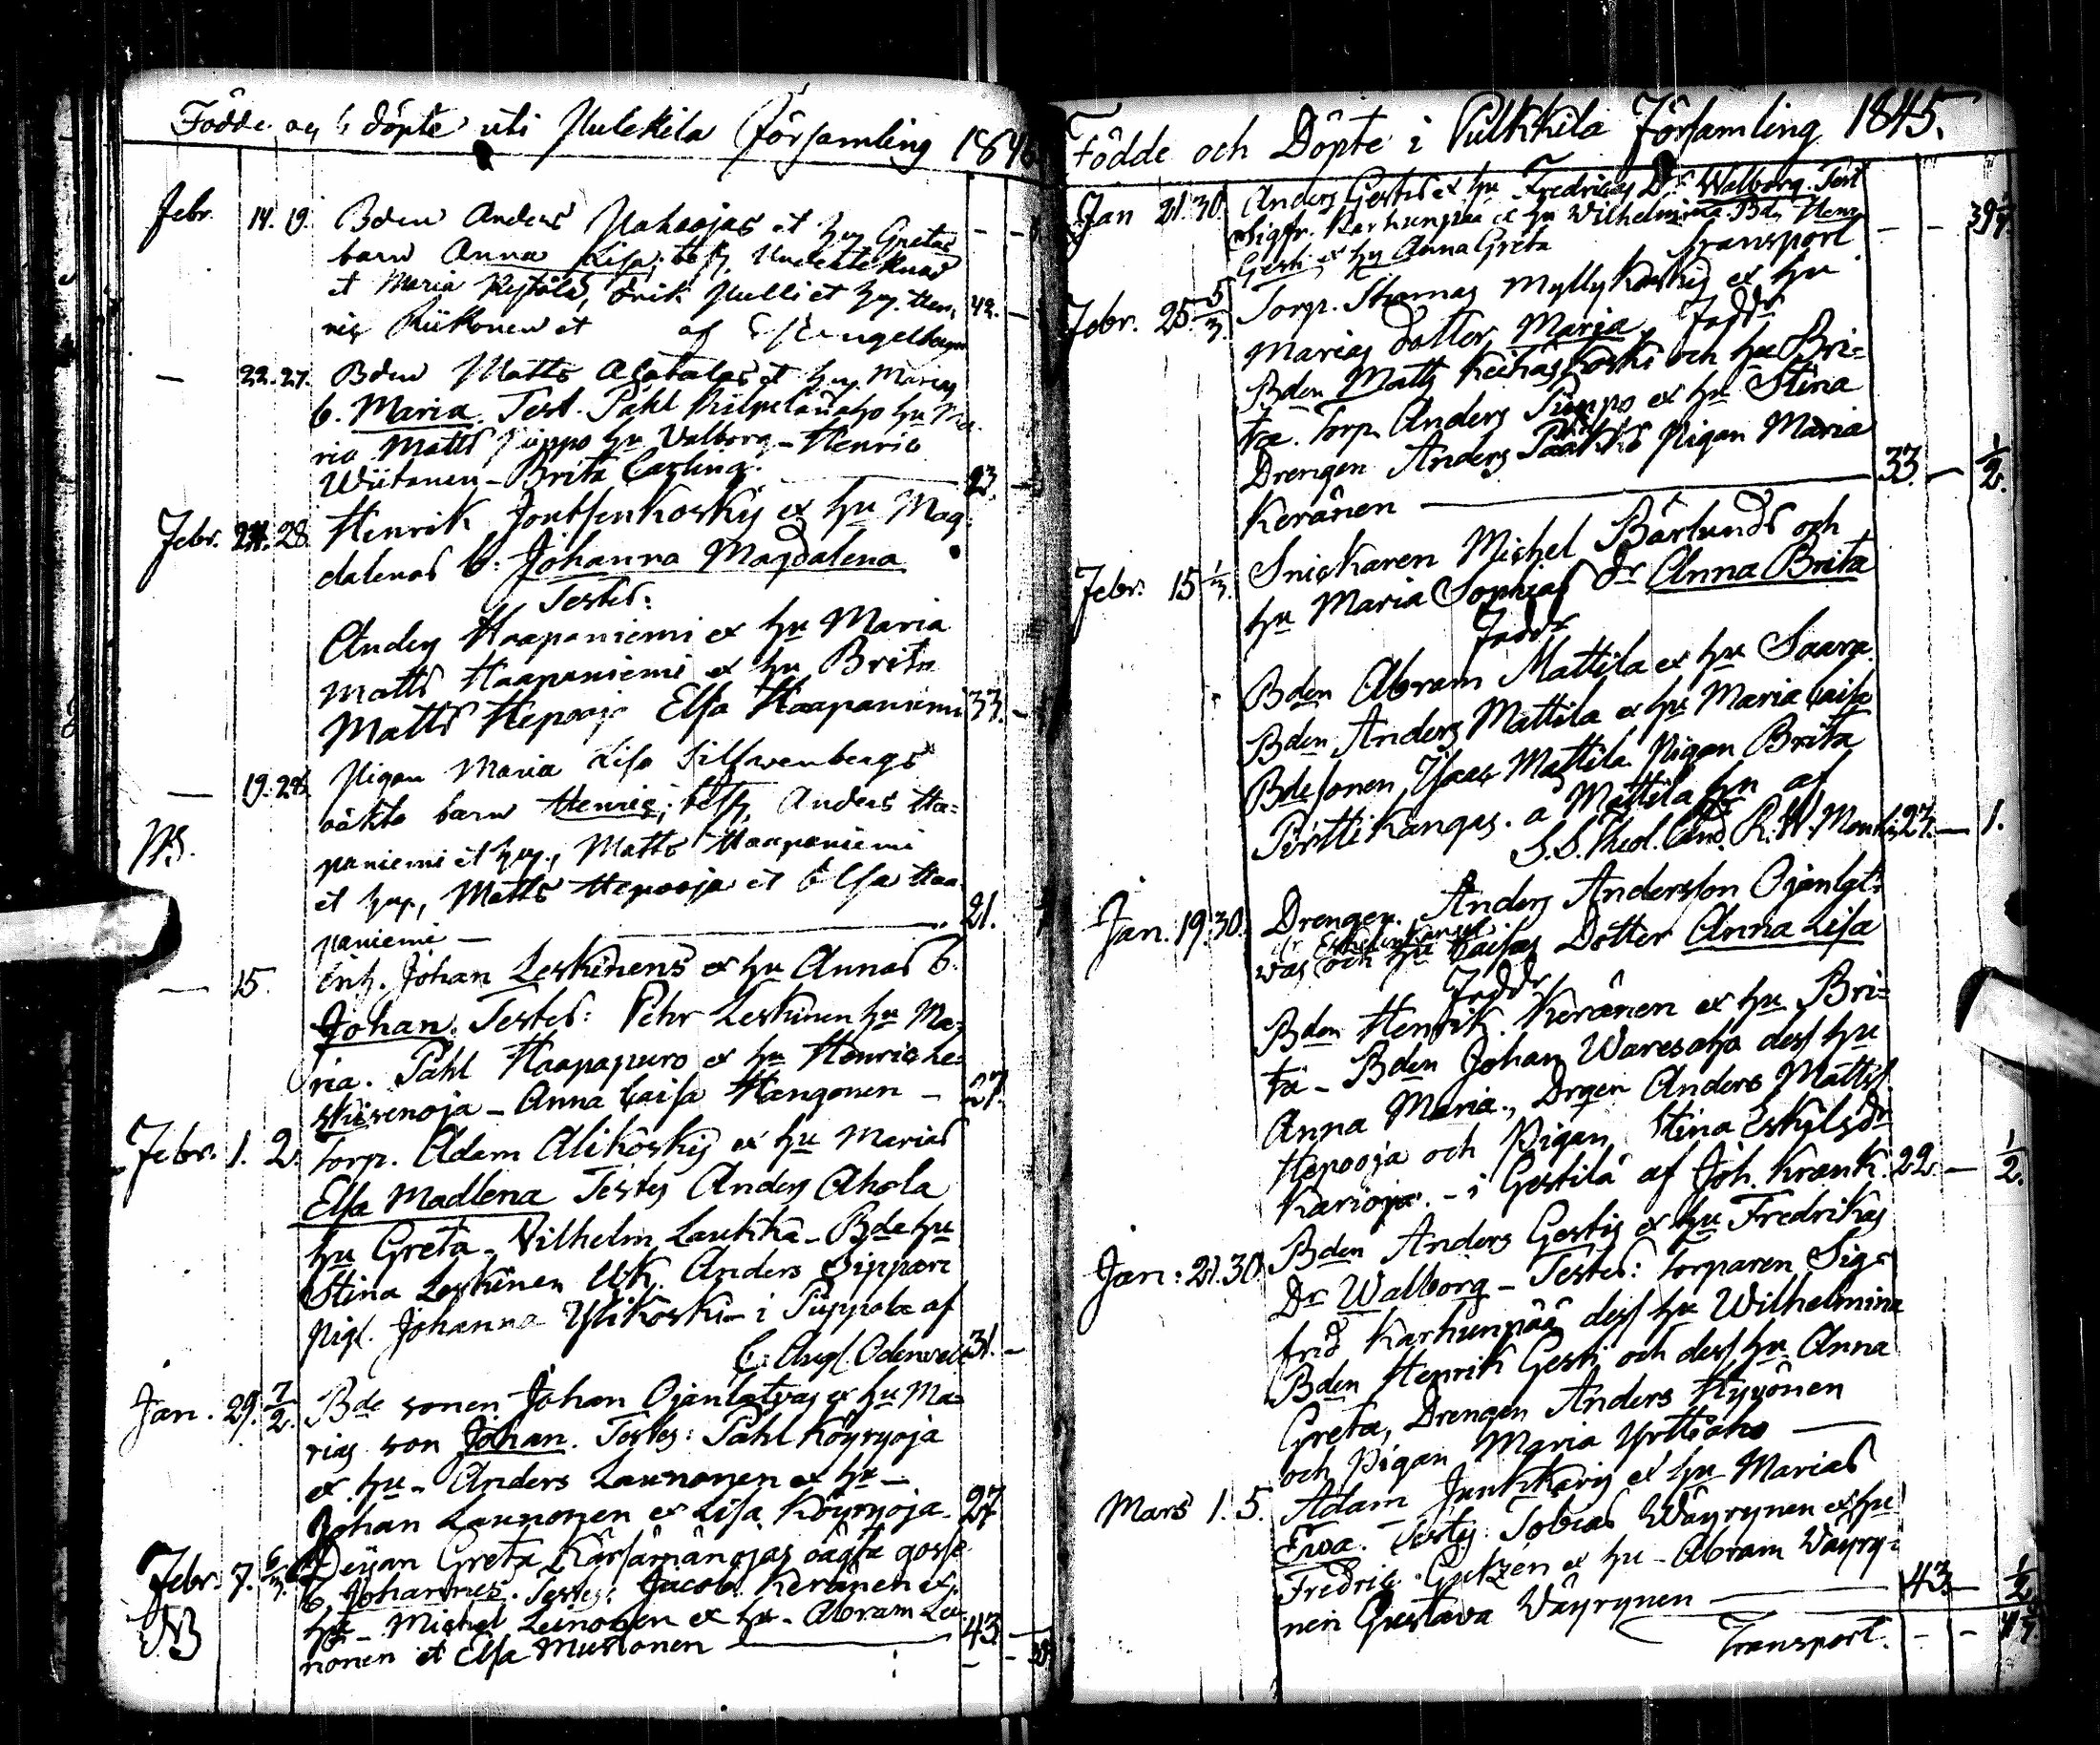 Födde och döpte uti Pulckila Församling 184
Febr. 14. 19. Bden Anders Hahoojas et hu Gretas
barn Anna Lisa; test,
et Maria Erik Pulli et hu, Hen- 42. -
ric Riikonen et af Engelberg
- 22. 27. Bden Matts Alatalos et hu Marias
b. Maria. Test. Påhl Kilpelänaho hu Ma-
ria Matts Piippo hu Valborg - Henric
Wiitanen - Brita Carling. 23. -
Febr. 24. 28. Henrik Joutsenkoskis et hu Mag-
dalenas b. Johanna Magdalena
Testes:
Anders Haapaniemi et hu Maria
Matts Haapaniemi et hu Brita
Matts Hepooja Elsa Haapaniemi 33. -
- 19. 24. Pigan Maria Lisa Silfwenbergs
NB. oäkta barn Henric; test, Anders Haa-
paniemi et hu, Matts Haapaniemi
et hu, Matts Hepooja et Elsa Haa-
paniemi - 21.
- 15. Inh. Johan Leskinens et hu Annas b.
Johan. Testes: Pehr Leskinen hu Ma-
ria. Påhl Haapapuro et hu Henric Le-
skisenoja - Anna Caisa Hangonen - 27.
Febr. 1. 2. Torp. Adam Alikoskis et hu Marias
Elsa Madlena Testes Anders Ahola
hu Greta - Vilhelm Laukka - Bde hu
Stina Leskinen Ynk. Anders Sippari
Pig. Johanna Ylikoski - i Piippola af
C. Aug. Odenwall 31. -
Jan. 29. 7/2. Bde sonen Johan Ojanlatvas et hu Ma-
rias son Johan. Testes: Påhl Köyryoja
et hu - Anders Launonen et hu -
Johan Launonen et Lisa Köyryoja. 27
Febr. 7. 6/3. Pigan Greta Kärsämänojas oägta gosse
NB b. Johannes. Testes: Jacob Keränen et
hu - Michel Leinonen et hu - Abram Lei-
nonen et Elsa Mustonen 43 -
Födde och Döpte i Pulkkila Församling 1845.
Jan 21. 30. Anders Gestis et hu Fredrikas Dr Walborg. Test
Sigfr. Karhunpää et hu Wilhelmina Bdn Henr
Gesti et hu Anna Greta Transport - - 39
Febr. 25. 5/3. Torp. Thomas Myllykoskis et hu
Marias dotter Maria Faddr
Bden Matts Keihäskoski och hu Bri=
ta. Torp. Anders Piippo et hu Stina
Drengen Anders Pigan Maria
Keränen 33 - 1/2.
Febr. 15 1/3. Snickaren Michel Bärlunds och
hu Maria Sophias dr Anna Brita
Faddr
Bden Abram Mattila et hu Saara
Bden Anders Mattila et hu Maria Caisa
Bdesonen, Isaac Mattila Pigan Brita
Pirttikangas. a Mattila hn af
S. S. Theol. Cand. R. W. 27. - 1.
Jan. 19. 30. Drengen Anders Andersson Ojanlat-
vas och hu Caisas Dotter Anna Lisa
Faddr
Bden Henrik Keränen et hu Bri=
ta - Bden Johan Waresaho dess hu
Anna Maria., Drgen Anders Mattss.
Hepooja och Pigan Stina Eskilsdr
Karioja. - i Gestilä af Joh. Krank 22. - 1/2.
Jan: 21. 30 Bden Anders Gestis et hu Fredrikas
Dr Walborg - Testes: Torparen Sig-
frid Karhunpää dess hu Wilhelmina
Bden Henrik Gesti och dess hu Anna
Greta, Drengen Anders Hyvönen
och Pigan Maria Yrttiaho
Mars 1. 5. Adam Junkkaris et hu Marias
Ewa. Testes: Tobias Wäyrynen et hu
Fredric Gutzén et hu - Abram Wäyry-
nen Gustava Wäyrynen 43 - 1/2
Transport. - -